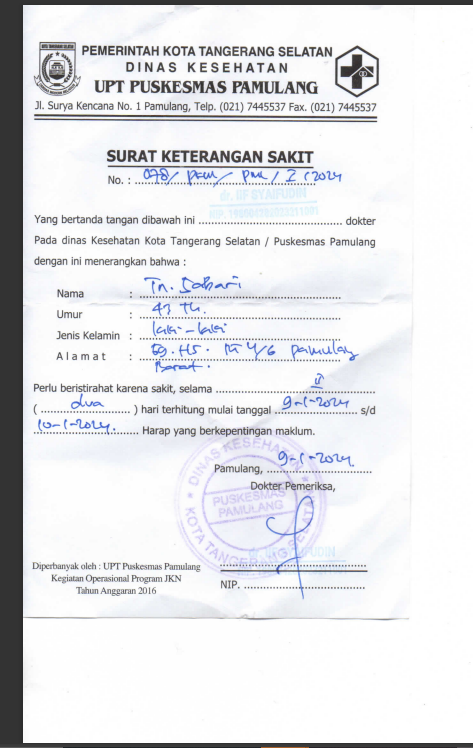 PEMERINTAH KOTA TANGERANG SELATAN
DINAS KESEHATAN
UPT PUSKESMAS PAMULANG
Jl. Surya Kencana No. 1 Pamulang, Telp. (021) 7445537 Fax. (021) 7445537
SURAT KETERANGAN SAKIT
No. : 078/ PKM/ PML / I /2024
dr. IIF SYAIFUDIN
NIP.
Yang bertanda tangan dibawah ini .......................................... dokter
Pada dinas Kesehatan Kota Tangerang Selatan / Puskesmas Pamulang
dengan ini menerangkan bahwa :
Nama : Tn. Sobari
Umur : 43 Th.
Jenis Kelamin : laki-laki
Alamat : 4/6 Pamulang
Barat.
Perlu beristirahat karena sakit, selama II
( dua ) hari terhitung mulai tanggal 9-1-2024 s/d
10-1-2024. Harap yang berkepentingan maklum.
Pamulang, 9-1-2024
Dokter Pemeriksa,
DINAS KESEHATAN
PUSKESMAS
PAMULANG
KOTA TANGERANG SELATAN
Diperbanyak oleh : UPT Puskesmas Pamulang
Kegiatan Operasional Program JKN
Tahun Anggaran 2016
NIP. ..........................................